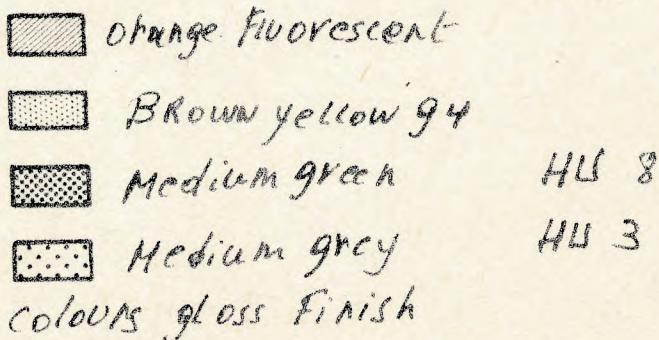 orange Fluorescent
BROWN yellow 94
Medium green HU 8
Medium grey HU 3
colours gloss Finish